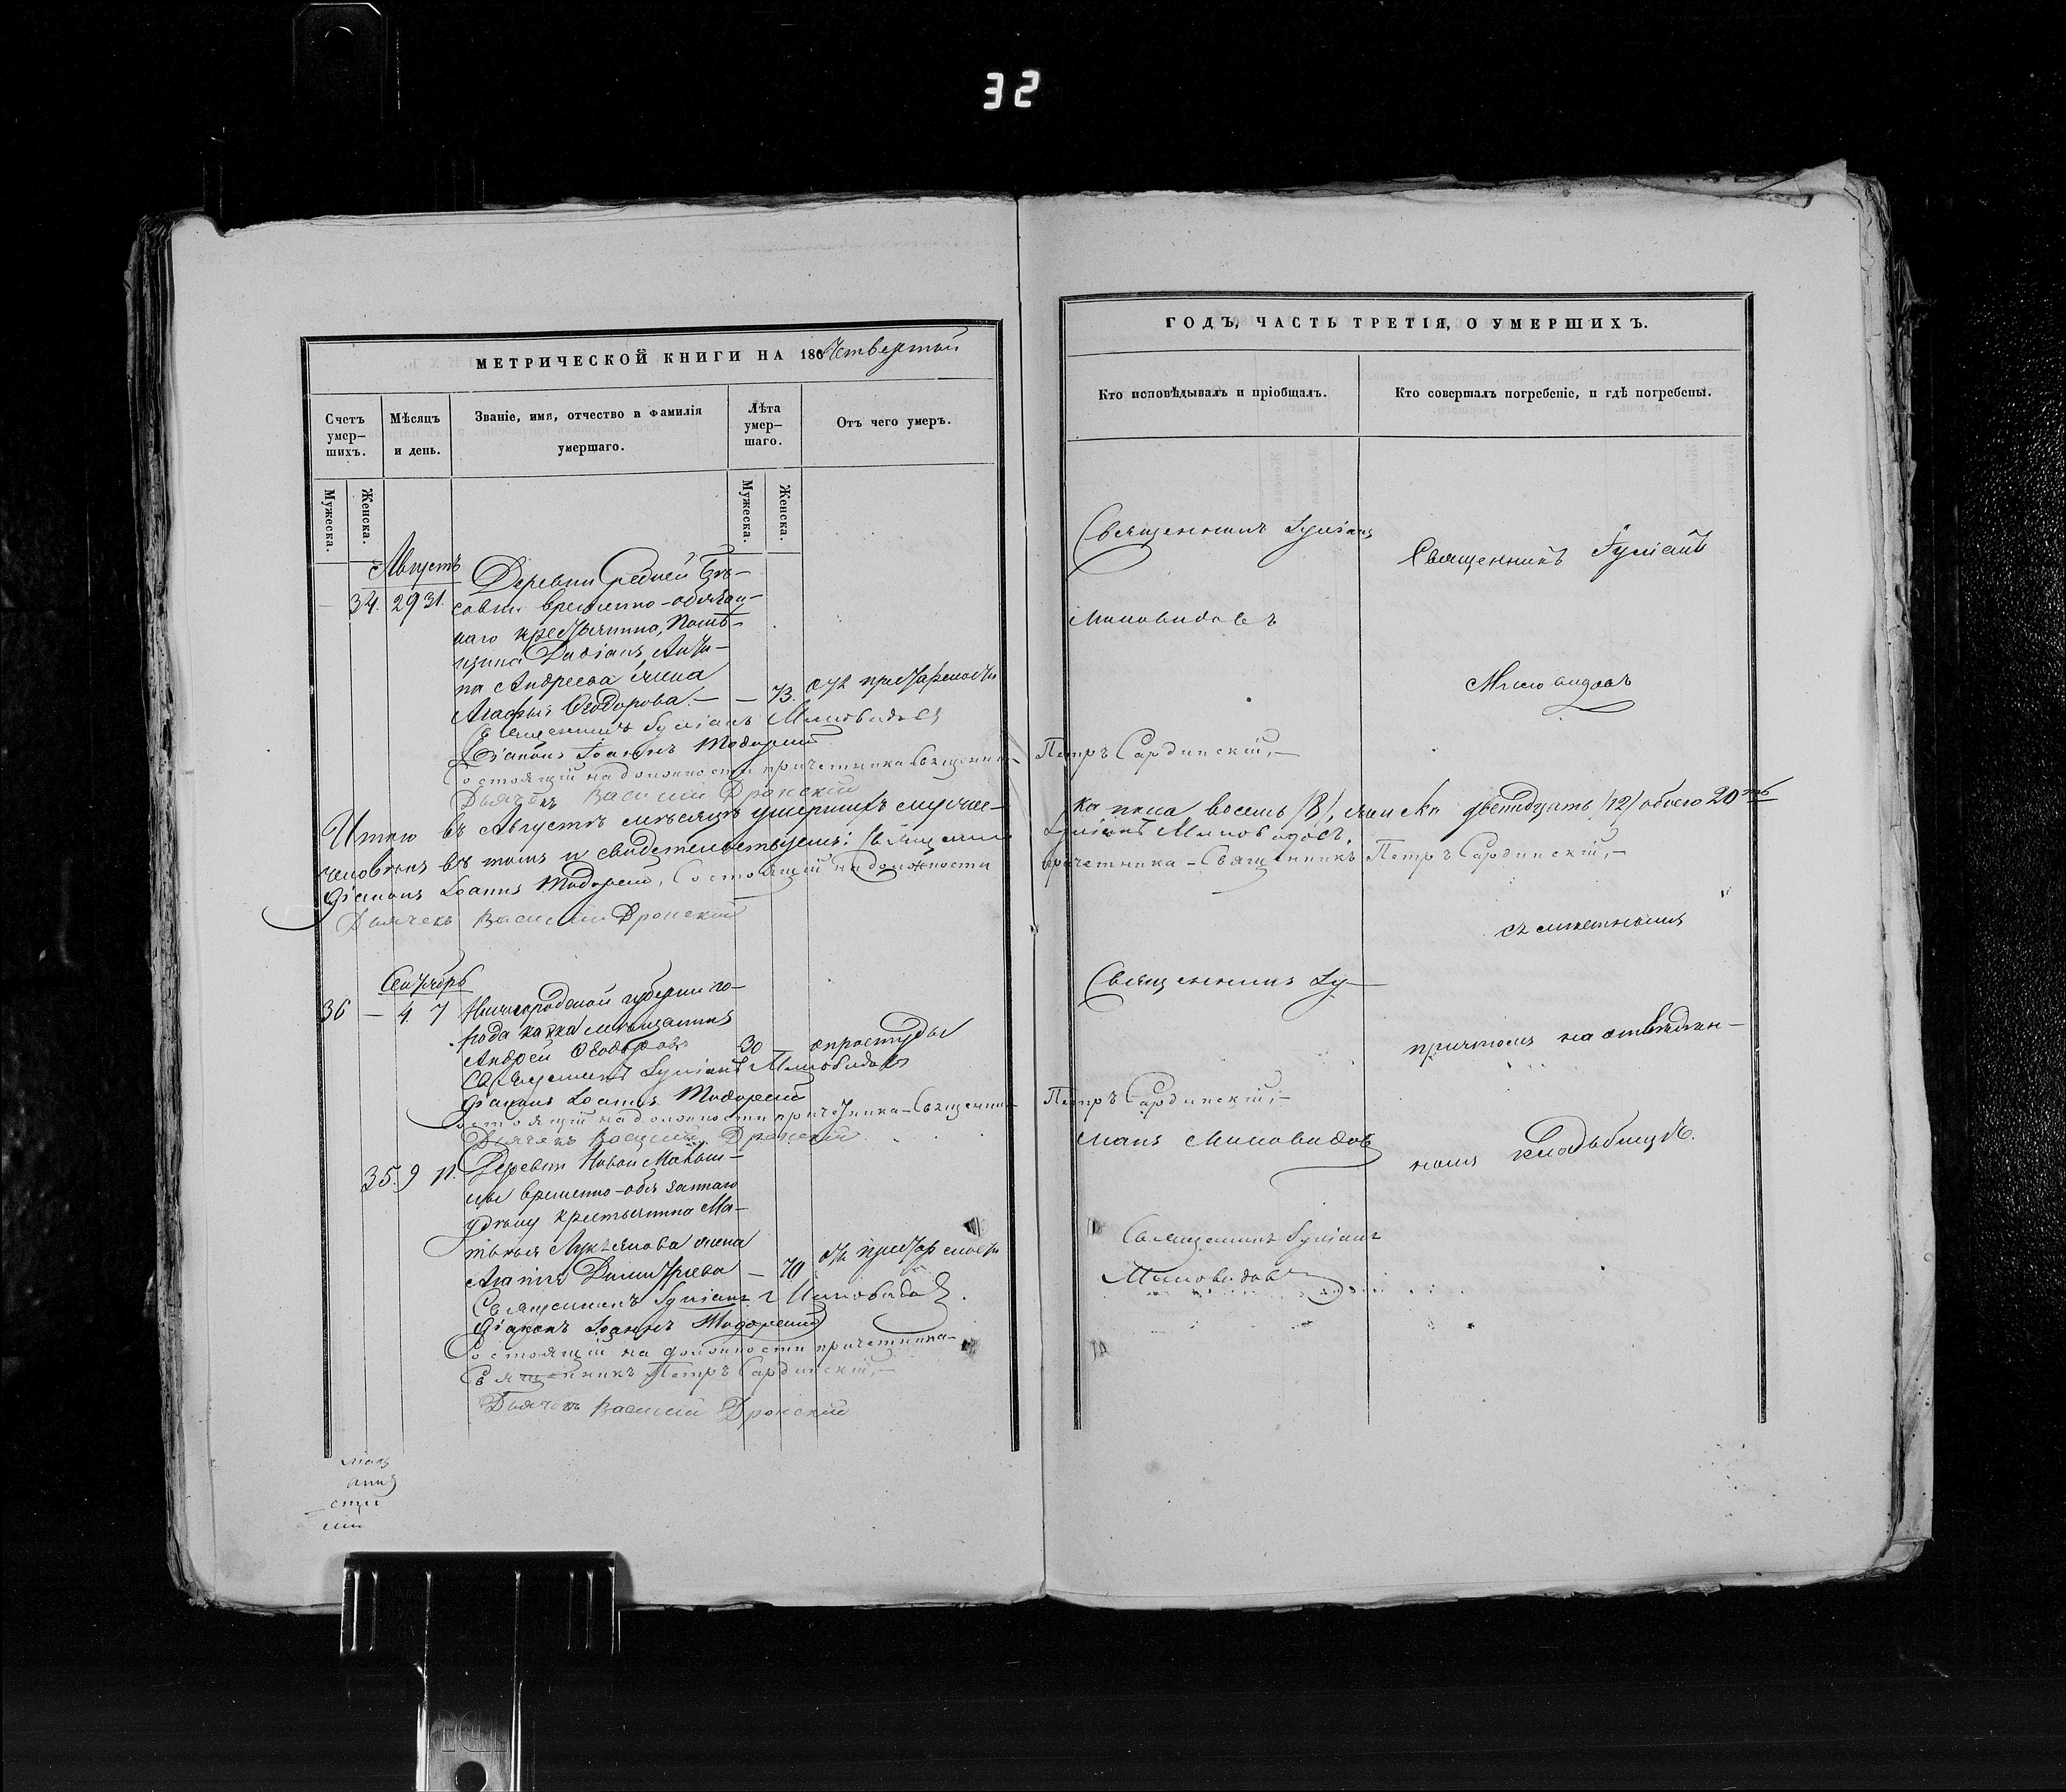 32
МЕТРИЧЕСКОЙ КНИГИ НА 186 Четвертый
ГОДЪ, ЧАСТЬ ТРЕТІЯ, О УМЕРШИХЪ.
Счетъ умер-
шихъ.
Мѣсяцъ
и день.
Званіе, имя, отчество и фамилія
умершаго.
Лѣта
умер-
шаго.
Отъ чего умеръ.
Мужеска.
Женска.
Мужеска.
Женска.
Августъ
34. 29 31. Деревни Средней
временно-обязан-
наго крестьянина, помѣ-
щика Анти-
па Андреева жена
Агафья Ѳеодорова. — — 73. отъ престарелости
Священникъ Іуліанъ Миловидовъ
Діаконъ Іоаннъ
Состоящій на должности причетника Священни-
Дьячекъ Василій Дронскій
Итого въ Августѣ мѣсяцѣ умершихъ мужес-
человѣкъ въ томъ и свидетельствуемъ: Священни
Діаконъ Іоаннъ Состоящій на должности
Дьячекъ Василій Дронскій
Сентябрь
36 — 4. 7 Нижегородской губерніи го-
рода мѣщанинъ
Андрей Ѳеодоровъ 30 — отъ простуды
Священникъ Іуліанъ Миловидовъ
Діаконъ Іоаннъ
Состоящій на должности причетника-Священни-
Дьячекъ Василій Дронскій
35. 9 11. Деревни Новой
временно-обязаннаго
крестьянина Ма-
твѣя Лукьянова жена
Димитріева — 70 отъ престарелости
Священникъ Іуліанъ Миловидовъ.
Діаконъ Іоаннъ
Состоящій на должности причетника-
Священникъ Петръ Сардинскій,—
Дьячекъ Василій Дронскій
Кто исповѣдывалъ и пріобщалъ.
Кто совершалъ погребеніе, и гдѣ погребены.
Священникъ Іуліанъ
Миловидовъ
Священникъ Іуліанъ
Миловидовъ
Петръ Сардинскій,—
ка пола восемь /8/, женска двенадцать /12/ обоего 20ть
Іуліанъ Миловидовъ.
причетника-Священникъ Петръ Сардинскій,—
съ
Священникъ Іу-
причтомъ на отведен-
Петръ Сардинскій,—
ліанъ Миловидовъ
номъ кладбищѣ.
Священникъ Іуліанъ
Миловидовъ